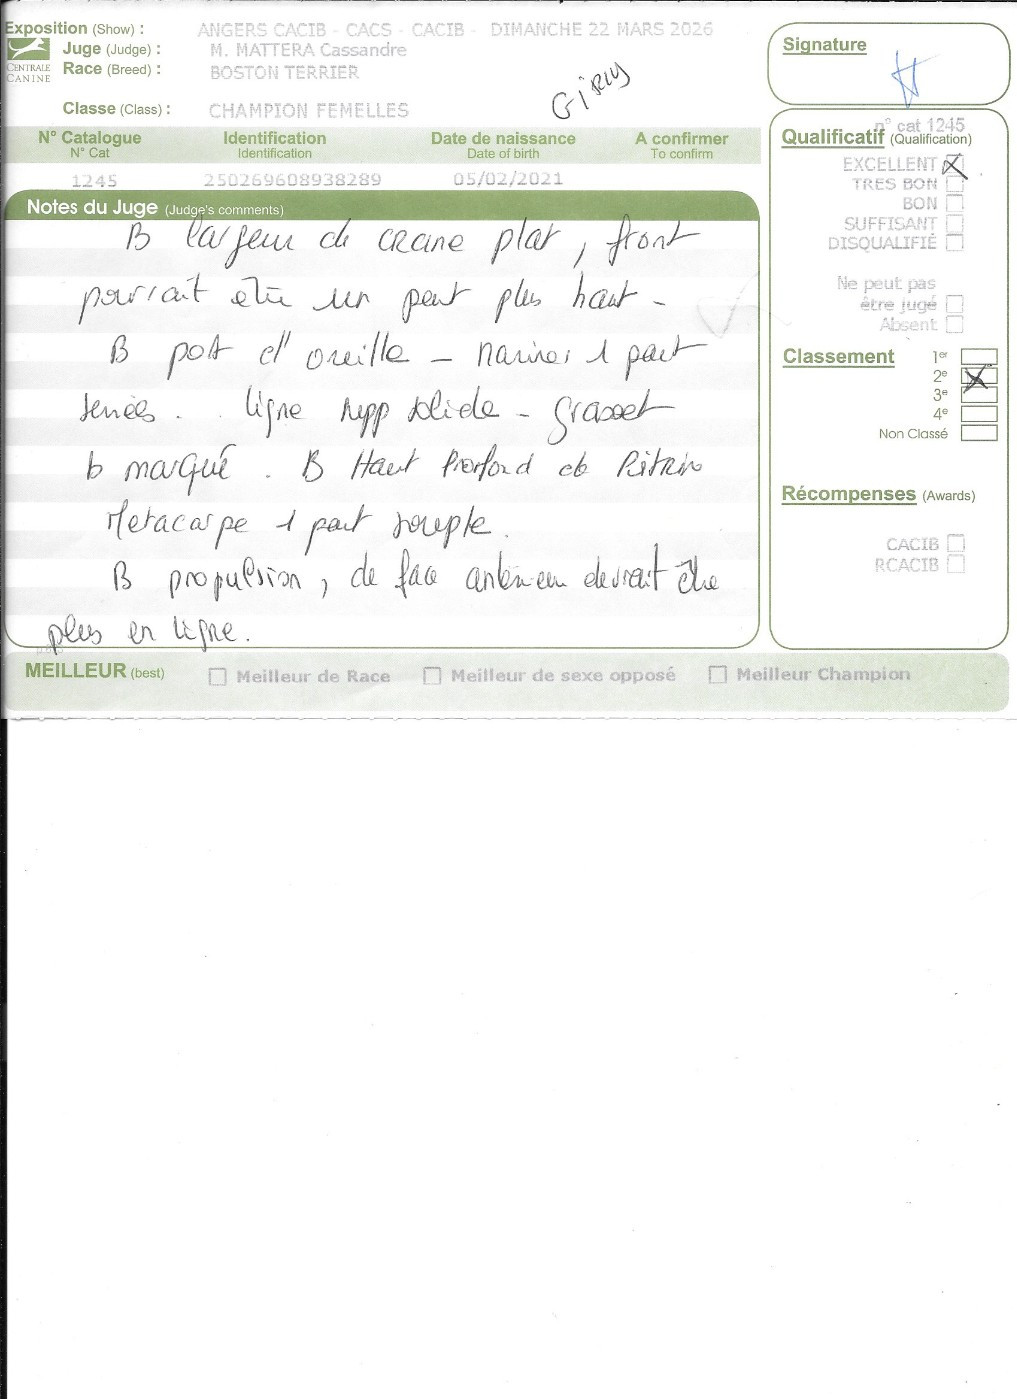 Exposition (Show) : ANGERS CACIB - CACS - CACIB - DIMANCHE 22 MARS 2026
Juge (Judge) : M. MATTERA Cassandre
Race (Breed) : BOSTON TERRIER
CENTRALE CANINE
Classe (Class) : CHAMPION FEMELLES
Girly
Signature
N° Catalogue Identification Date de naissance A confirmer
N° Cat Identification Date of birth To confirm
1245 250269608938289 05/02/2021
Notes du Juge (Judge's comments)
B largeur de crane plat, front
pourrait être un peut plus haut -
B port d'oreille - narines 1 peut
serrées. ligne supp solide - grasset
b marqué. B Haut Profond de Poitrine
Metacarpe 1 peut souple.
B propulsion, de face antérieur devrait être
plus en ligne.
n° cat 1245
Qualificatif (Qualification)
EXCELLENT
TRES BON
BON
SUFFISANT
DISQUALIFIÉ
Ne peut pas
être jugé
Absent
Classement
1er
2e
3e
4e
Non Classé
Récompenses (Awards)
CACIB
RCACIB
MEILLEUR (best) Meilleur de Race Meilleur de sexe opposé Meilleur Champion